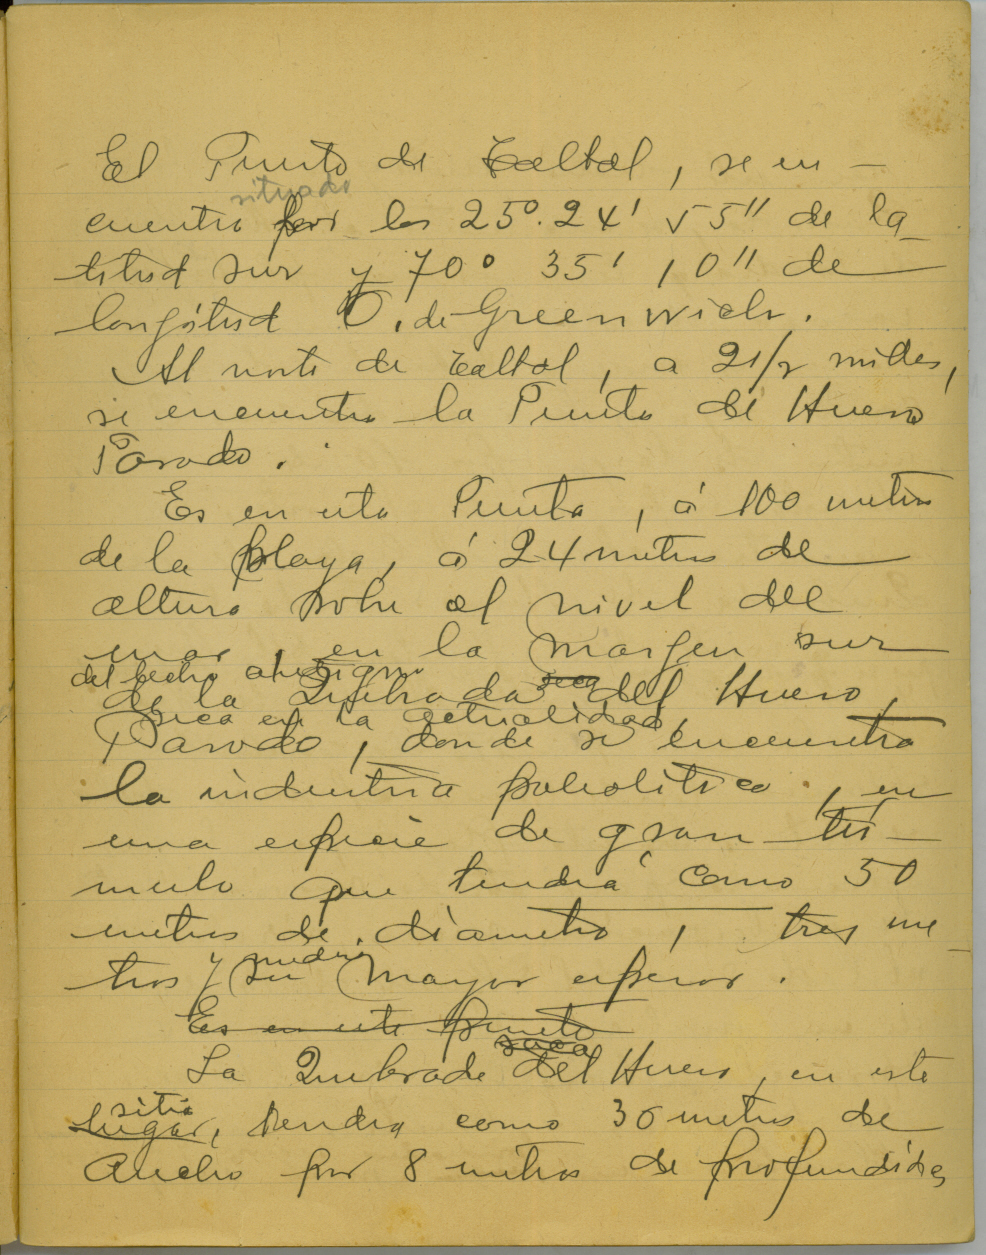 El Puerto de Taltal, se en-
situado
cuentra por los 25º.24' 55" de la-
titud sur y 70º 35' 10" de
longitud O. de Greenwich.
Al norte de Taltal, a 2 1/2 millas,
se encuentra la Punta de Hueso
Parado.
Es en esta Punta, á 100 metros
de la playa, á 24 metros de
altura sobre el nivel del
mar, en la margen sur
del lecho antiguo
de la Quebrada seca del Hueso
seca en la actualidad,
Parado, donde se encuentra
la industria paleolitica, en
una especie de gran tú-
mulo que tendrá como 50
metros de diámetro, tres me-
tros y medio
su mayor espesor.
Es en este punto
seca
La Quebrada del Hueso, en este
sitio
lugar, tendra como 30 metros de
ancho por 8 metros de profundidad